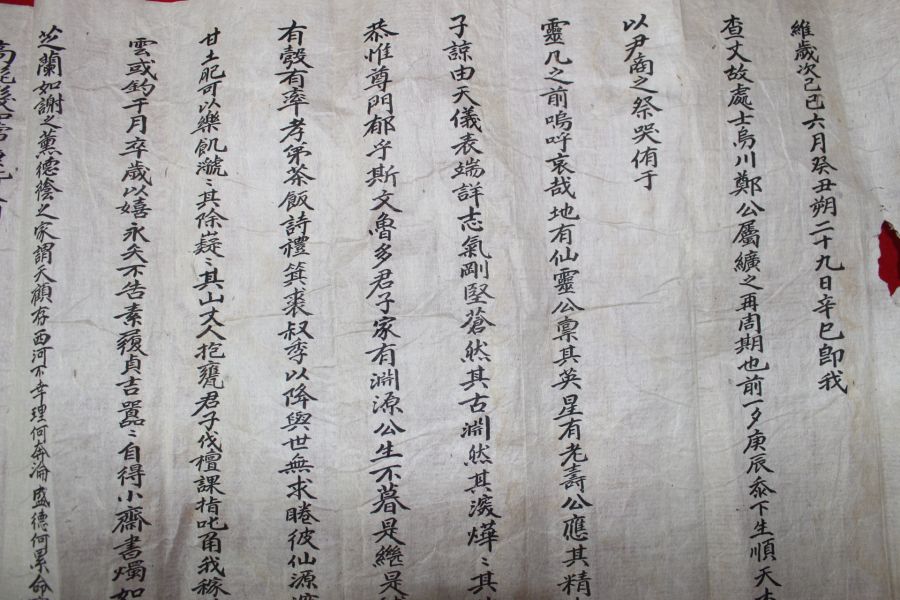 維歲次己巳六月癸丑朔二十九日辛巳卽我
査丈故處士烏川鄭公屬纊之再周期也前一夕庚辰忝下生順天
以尹商之祭哭侑于
靈几之前嗚呼哀哉地有仙靈公稟其英星有老壽公應其精
子諒由天儀表端詳志氣剛堅蒼然其古淵然其濙燁〻其
恭惟尊門郁乎斯文魯多君子家有淵源公生不暮是繼是
有穀有率孝弟茶飯詩禮箕裘叔季以降與世無求睠彼仙源
甘土肥可以樂飢㶁〻其除嶷〻其山丈人抱甕君子伐檀課指叱甬我稼
雲或釣于月卒歲以嬉永矢不告素履貞吉囂〻自得小齋書燭如
芝蘭如謝之薰德陰之家謂天顧存西河不幸理何舛淪盛德何累命